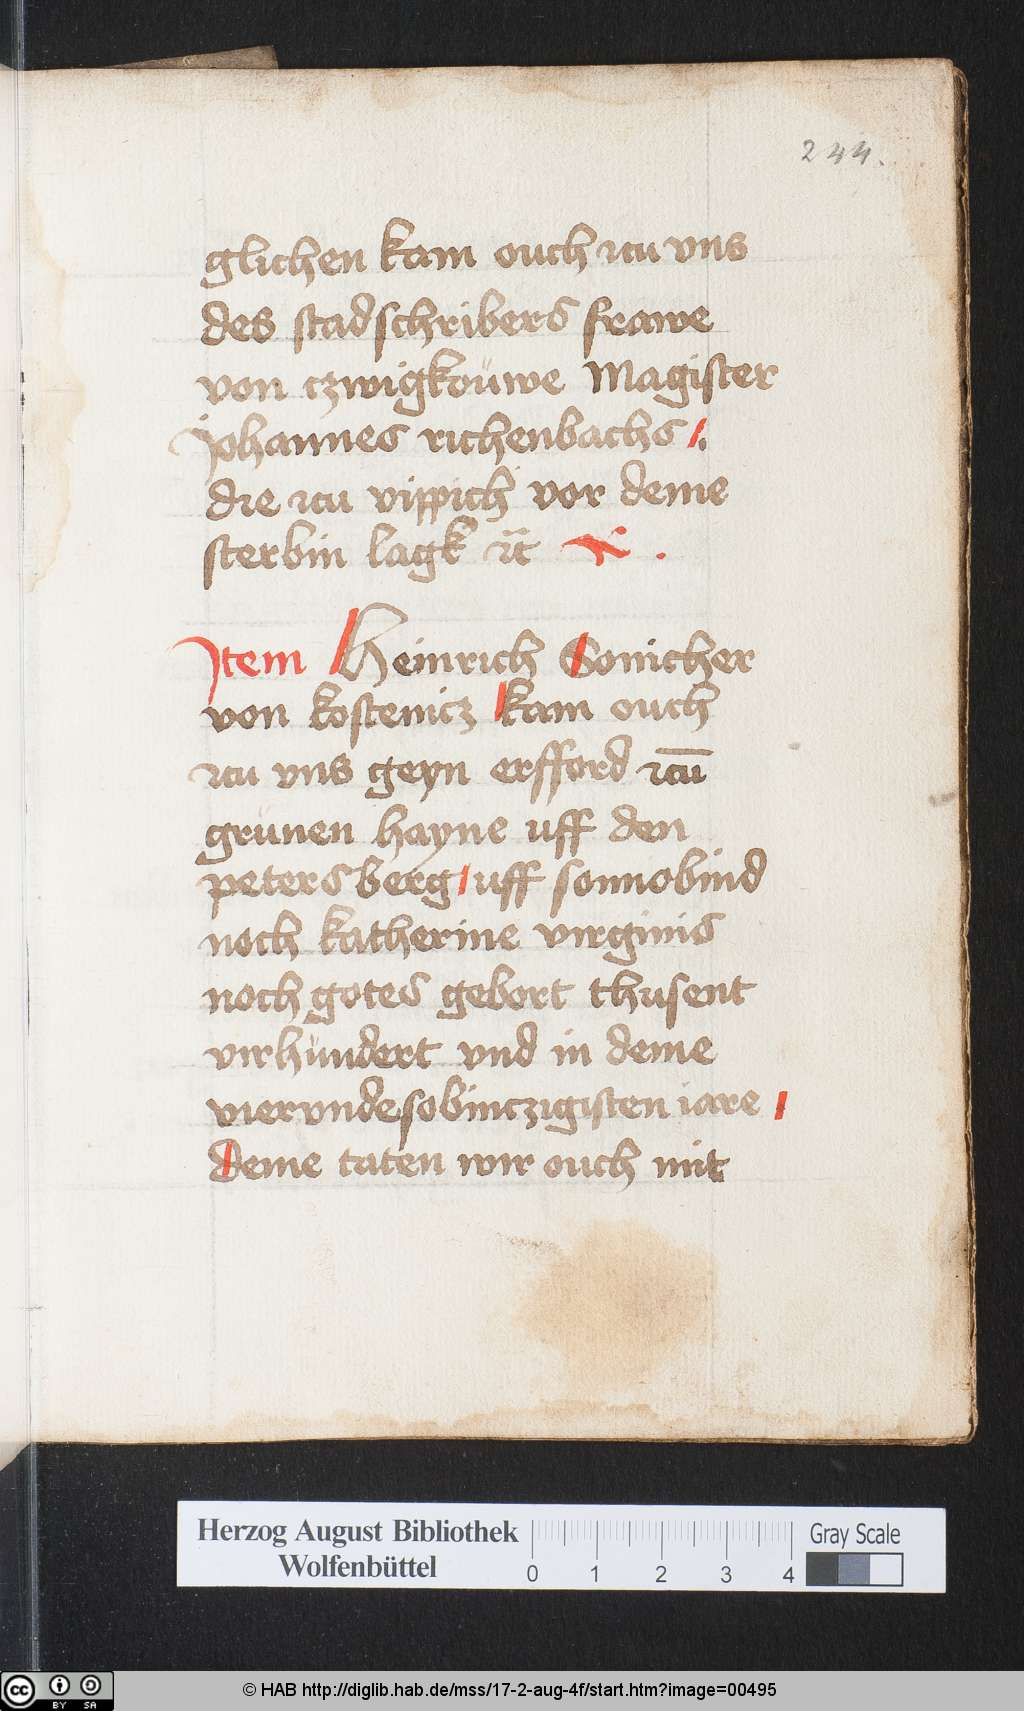 244.
glichen kam ouch zcu vns
des stadschribers frawe
von czwigkoüwe Magister
Johannes richenbachs
die zcu vippich vor deme
sterbin lagk
Item Heinrich Sonicher
von kostenicz kam ouch
zcu vns geyn erfford zcum̄
grünen hayne uff den
petersberg uff sonnobind
noch katherine virginis
noch gotes gebort thusent
virhündert vnd in deme
viervndesobinczigisten iare
deme taten wir ouch mit
Herzog August Bibliothek
Wolfenbüttel
0 1 2 3 4
Gray Scale
cc BY SA
© HAB http://diglib.hab.de/mss/17-2-aug-4f/start.htm?image=00495